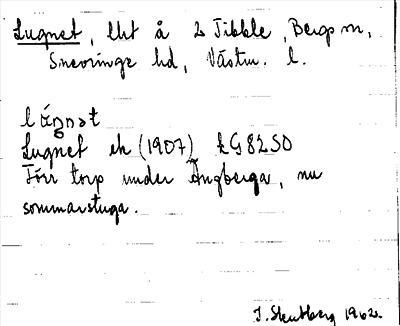 Lugnet, lht å 2 Tibble, Bergs sn,
Snevringe hd, Västm. l.
Lugnet ek (1907) kG 8250
Förr torp under Ängberga, nu
sommarstuga.
1962